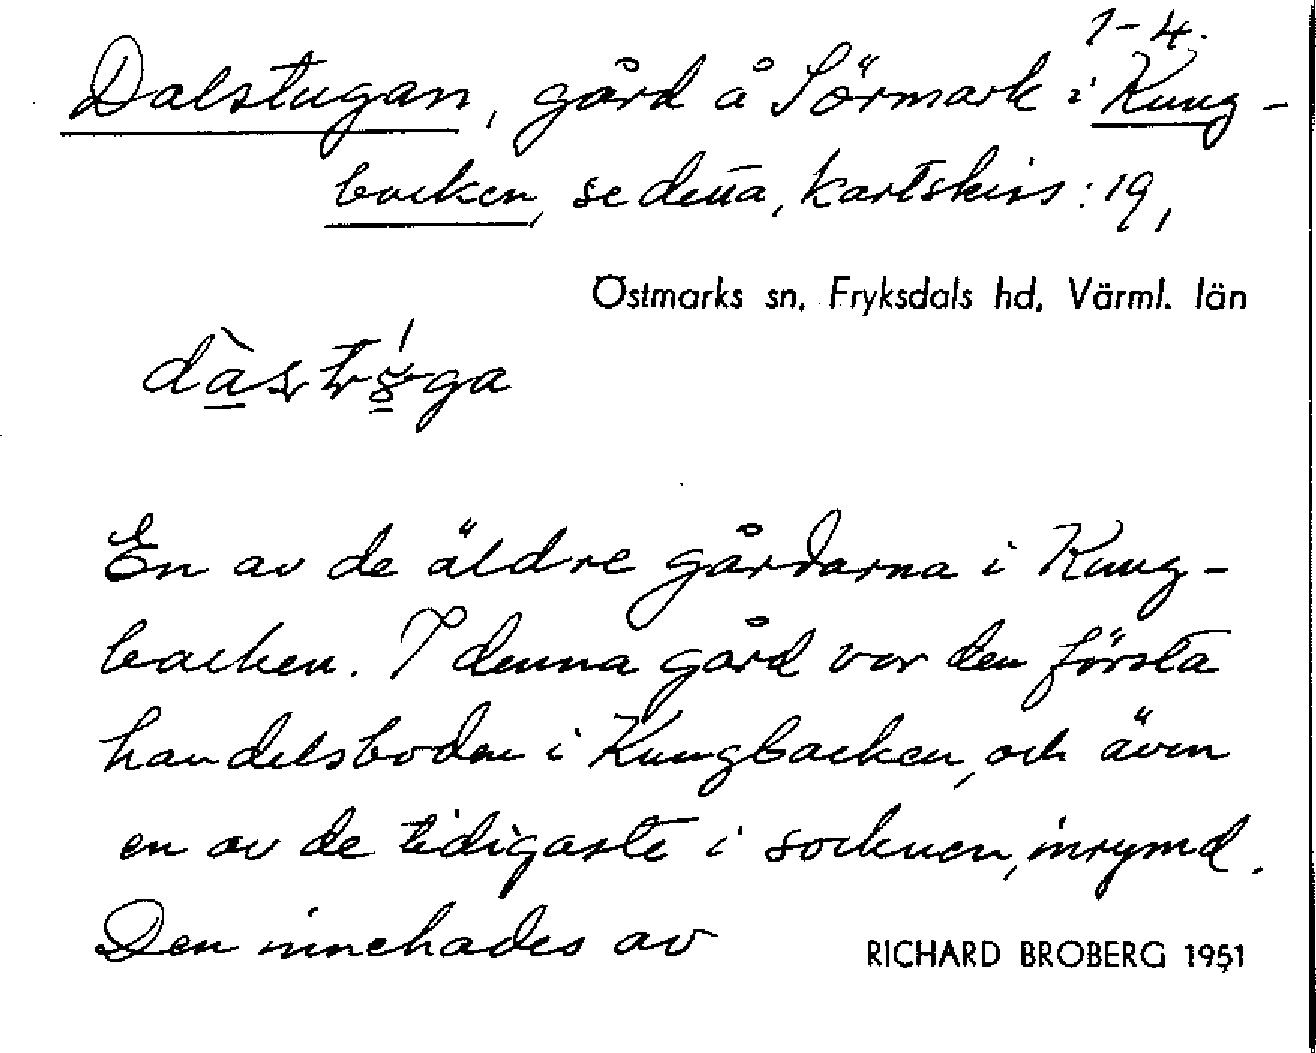 1-4.
Dalstugan, gård å Sörmark i Kung-
backen, se detta, kartskiss: 19,
Östmarks sn. Fryksdals hd. Värml. län
En av de äldre gårdarna i Kung-
backen. I denna gård var den första
handelsboden i Kungbacken, och även
en av de tidigaste i socknen, inrymd.
Den innehades av
RICHARD BROBERG 1951